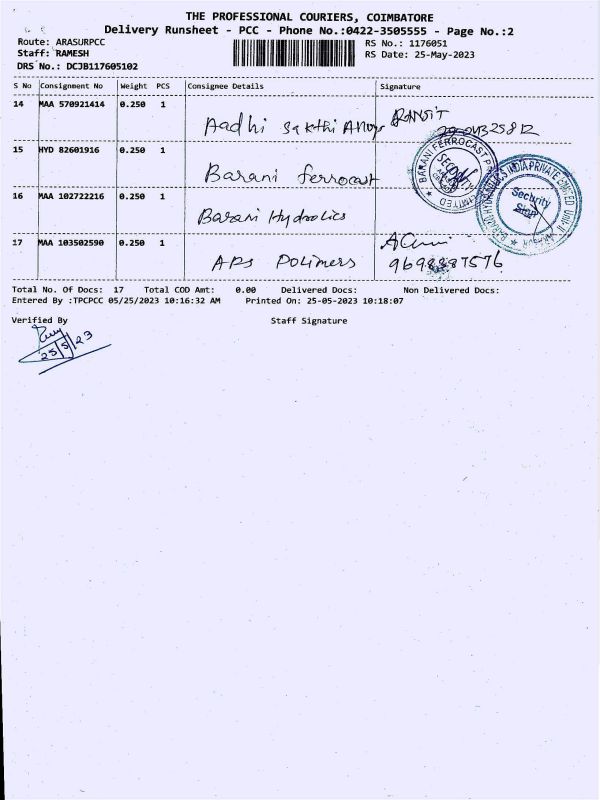 THE PROFESSIONAL COURIERS, COIMBATORE
Delivery Runsheet - PCC - Phone No.:0422-3505555 - Page No.:2
Route: ARASURPCC RS No.: 1176051
Staff: RAMESH RS Date: 25-May-2023
DRS No.: DCJB117605102
S No Consignment No Weight PCS Consignee Details Signature
14 MAA 570921414 0.250 1
Aadhi Sakthi Alloys
15 HYD 82601916 0.250 1
Barani ferrocast
BARANI FERROCAST P LIMITED
SECURITY
16 MAA 102722216 0.250 1
Barani Hydrolics
INDIA PRIVATE LIMITED UNIT II
Security
Sign
17 MAA 103502590 0.250 1
APS Polimers
9698887576
Total No. Of Docs: 17 Total COD Amt: 0.00 Delivered Docs: Non Delivered Docs:
Entered By :TPCPCC 05/25/2023 10:16:32 AM Printed On: 25-05-2023 10:18:07
Verified By Staff Signature
25/5/23